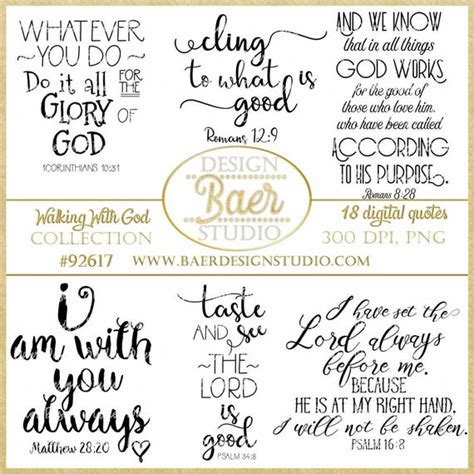 WHATEVER
YOU DO
Do it all FOR THE
GLORY OF
GOD
1CORINTHIANS 10:31
cling
to what is
good
Romans 12:9
AND WE KNOW
that in all things
GOD WORKS
for the good of
those who love him,
who have been called
ACCORDING
TO HIS PURPOSE.
Romans 8:28
Walking With God
COLLECTION
#92617
DESIGN
Baer
STUDIO
18 digital quotes
300 DPI, PNG
WWW.BAERDESIGNSTUDIO.COM
i
am with
you
always
Matthew 28:20
taste
AND see
THE
LORD
is
good
PSALM 34:8
I have set the
Lord always
before me.
BECAUSE
HE IS AT MY RIGHT HAND,
I will not be shaken.
PSALM 16:8